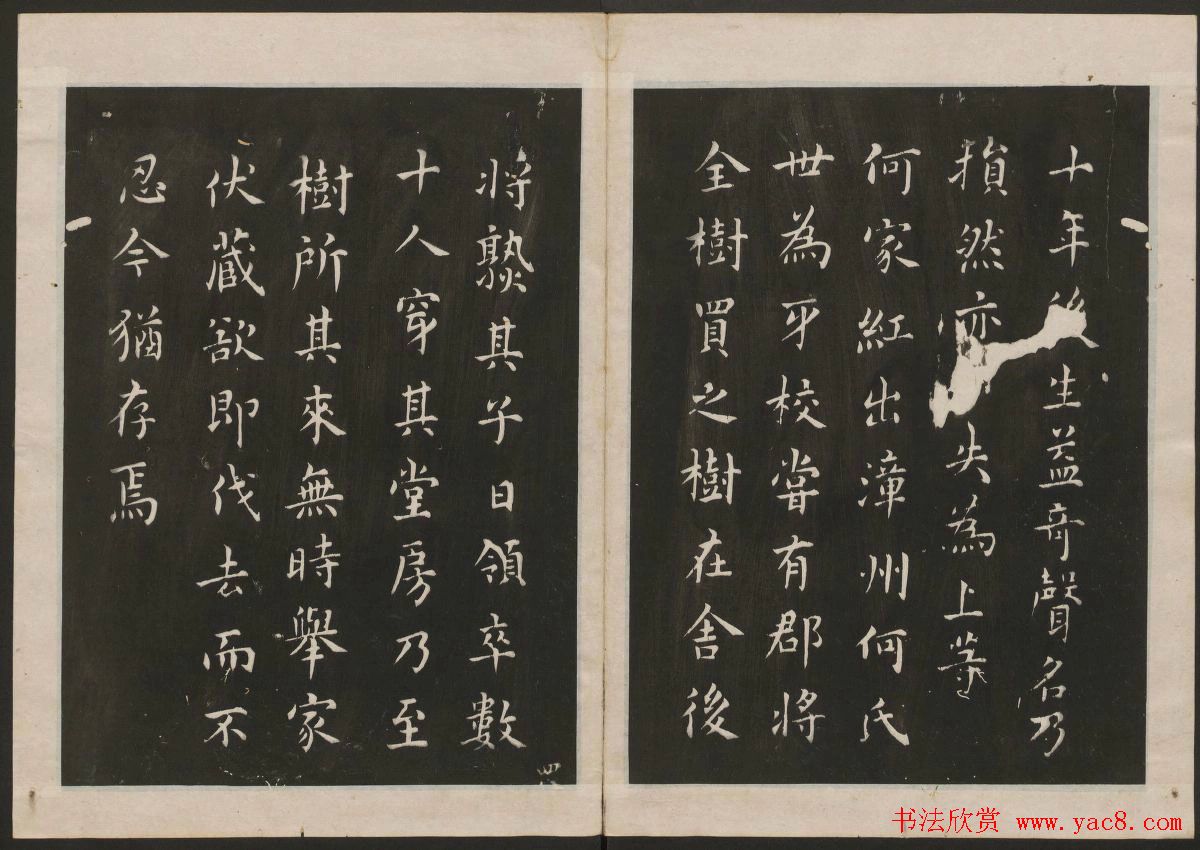 十年後生益奇聲名乃
損然亦
失為上等
何家紅出漳州何氏
世為牙校嘗有郡將
全樹買之樹在舍後
將熟其子日領卒數
十人穿其堂房乃至
樹所其來無時舉家
伏藏欲即伐去而不
忍今猶存焉
四
书法欣赏 www.yac8.com